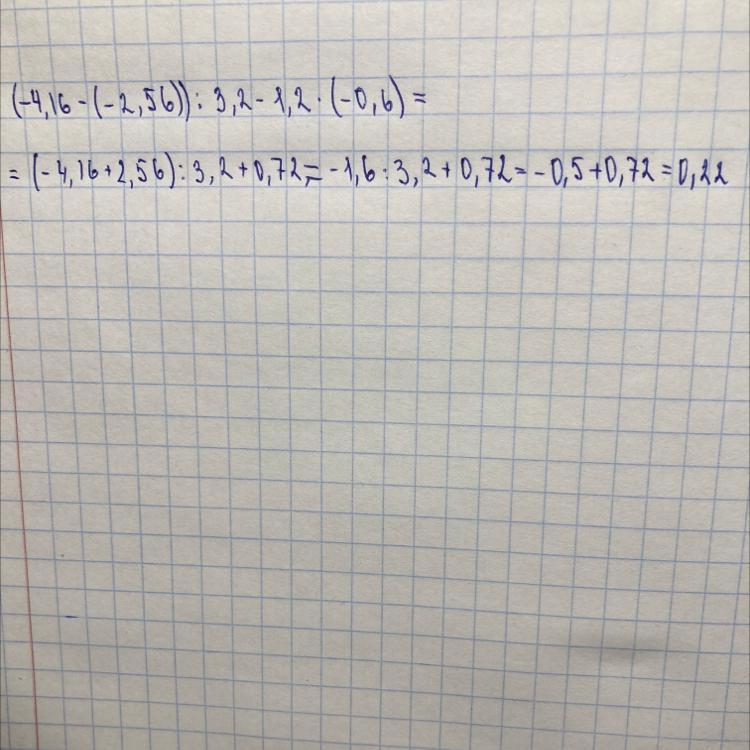 (-4,16-(-2,56)):3,2-1,2·(-0,6)=
=(-4,16+2,56):3,2+0,72=-1,6:3,2+0,72=-0,5+0,72=0,22